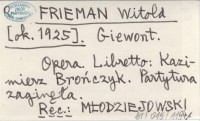 FRIEMAN Witold
[ok. 1925]. Giewont.
Opera. Libretto: Kazi-
mierz Brończyk. Partytura
zaginęła.
Rec.: MŁODZIEJOWSKI